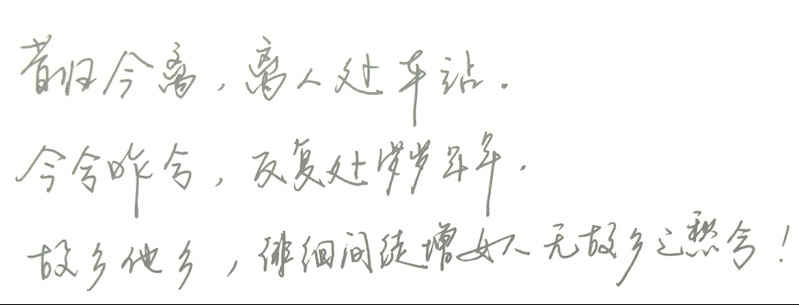 昔归今离，离人处车站。
今舍昨舍，反复处岁岁年年。
故乡他乡，徘徊间徒增如人无故乡之愁！